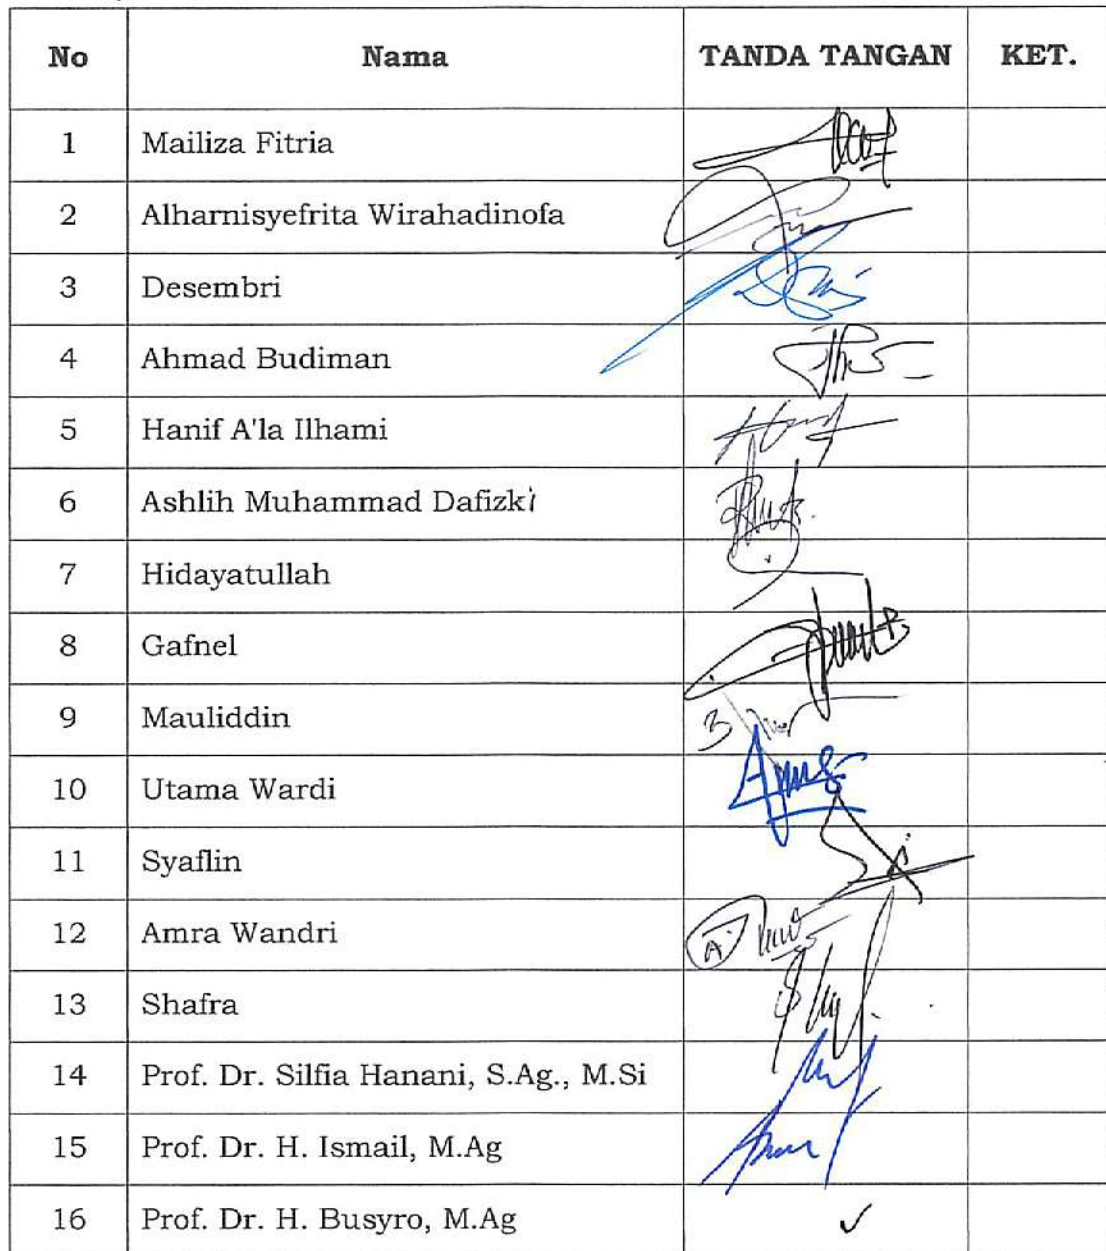 No Nama TANDA TANGAN KET.
1 Mailiza Fitria
2 Alharnisyefrita Wirahadinofa
3 Desembri
4 Ahmad Budiman
5 Hanif A'la Ilhami
6 Ashlih Muhammad Dafizki
7 Hidayatullah
8 Gafnel
9 Mauliddin
10 Utama Wardi
11 Syaflin
12 Amra Wandri
13 Shafra
14 Prof. Dr. Silfia Hanani, S.Ag., M.Si
15 Prof. Dr. H. Ismail, M.Ag
16 Prof. Dr. H. Busyro, M.Ag ✓